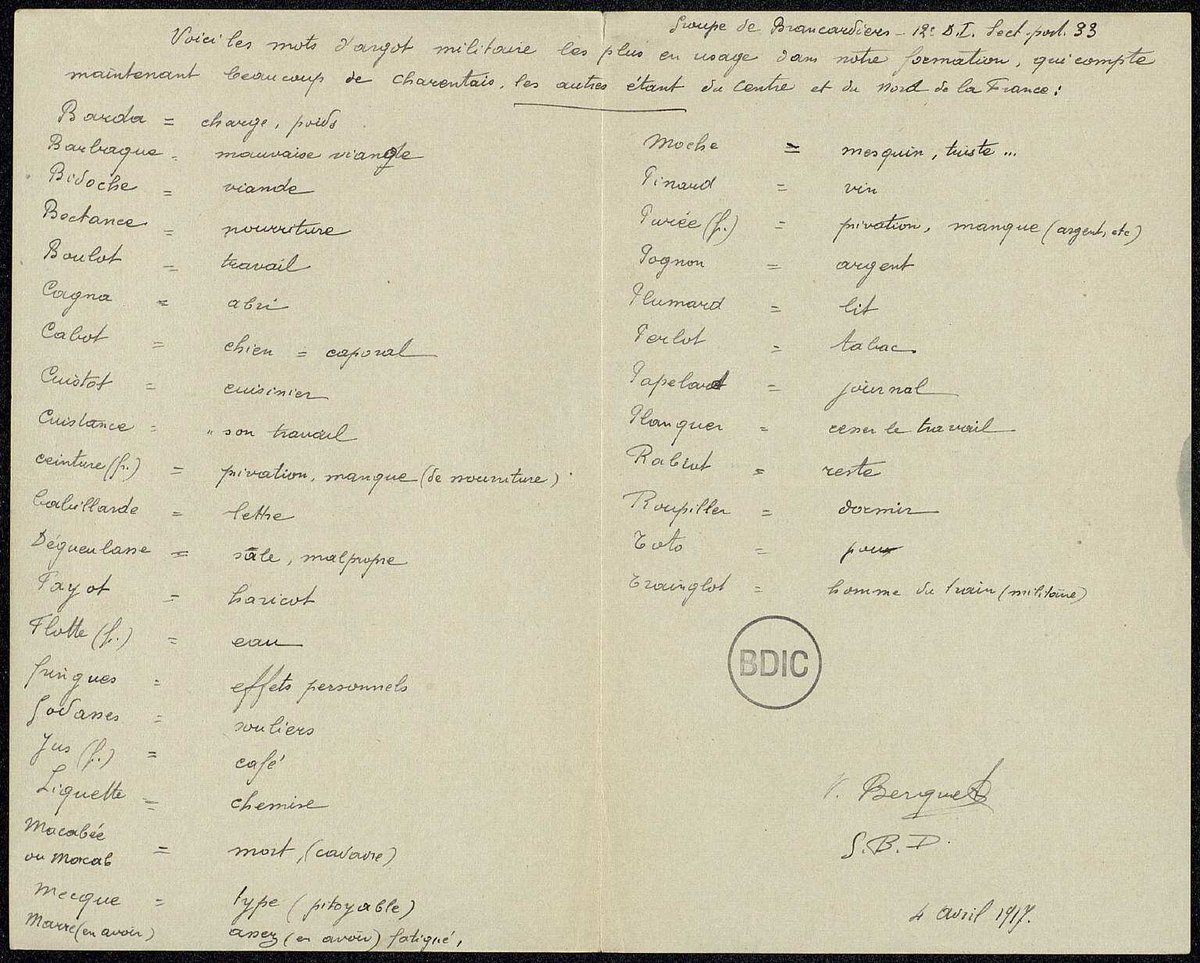 Groupe de Brancardiers - 12e D.I. Sect. post. 33
Voici les mots d'argot militaire les plus en usage dans notre formation, qui compte
maintenant beaucoup de charentais, les autres étant du Centre et du Nord de la France :
Barda = charge, poids
Barbaque = mauvaise viande
Bidoche = viande
Bectance = nourriture
Boulot = travail
Cagna = abri
Cabot = chien = caporal
Cuistot = cuisinier
Cuistance = " son travail
ceinture (f.) = privation, manque (de nourriture)
babillarde = lettre
Dégueulasse = sâle, malpropre
Fayot = haricot
Flotte (f.) = eau
fringues = effets personnels
Godasses = souliers
Jus (f.) = café
Liquette = chemise
Macabée
ou Macab = mort, (cadavre)
Mecque = type (pitoyable)
Marre (en avoir) assez (en avoir) fatigué,
Moche = mesquin, triste ...
Pinard = vin
Purée (f.) = privation, manque (argent, etc)
Pognon = argent
Plumard = lit
Perlot = tabac
Papelard = journal
Planquer = cesser le travail
Rabiot = reste
Roupiller = dormir
Toto = pou
Trainglot = homme du train (militaire)
BDIC
Berquet
G.B.D.
4 avril 1917.